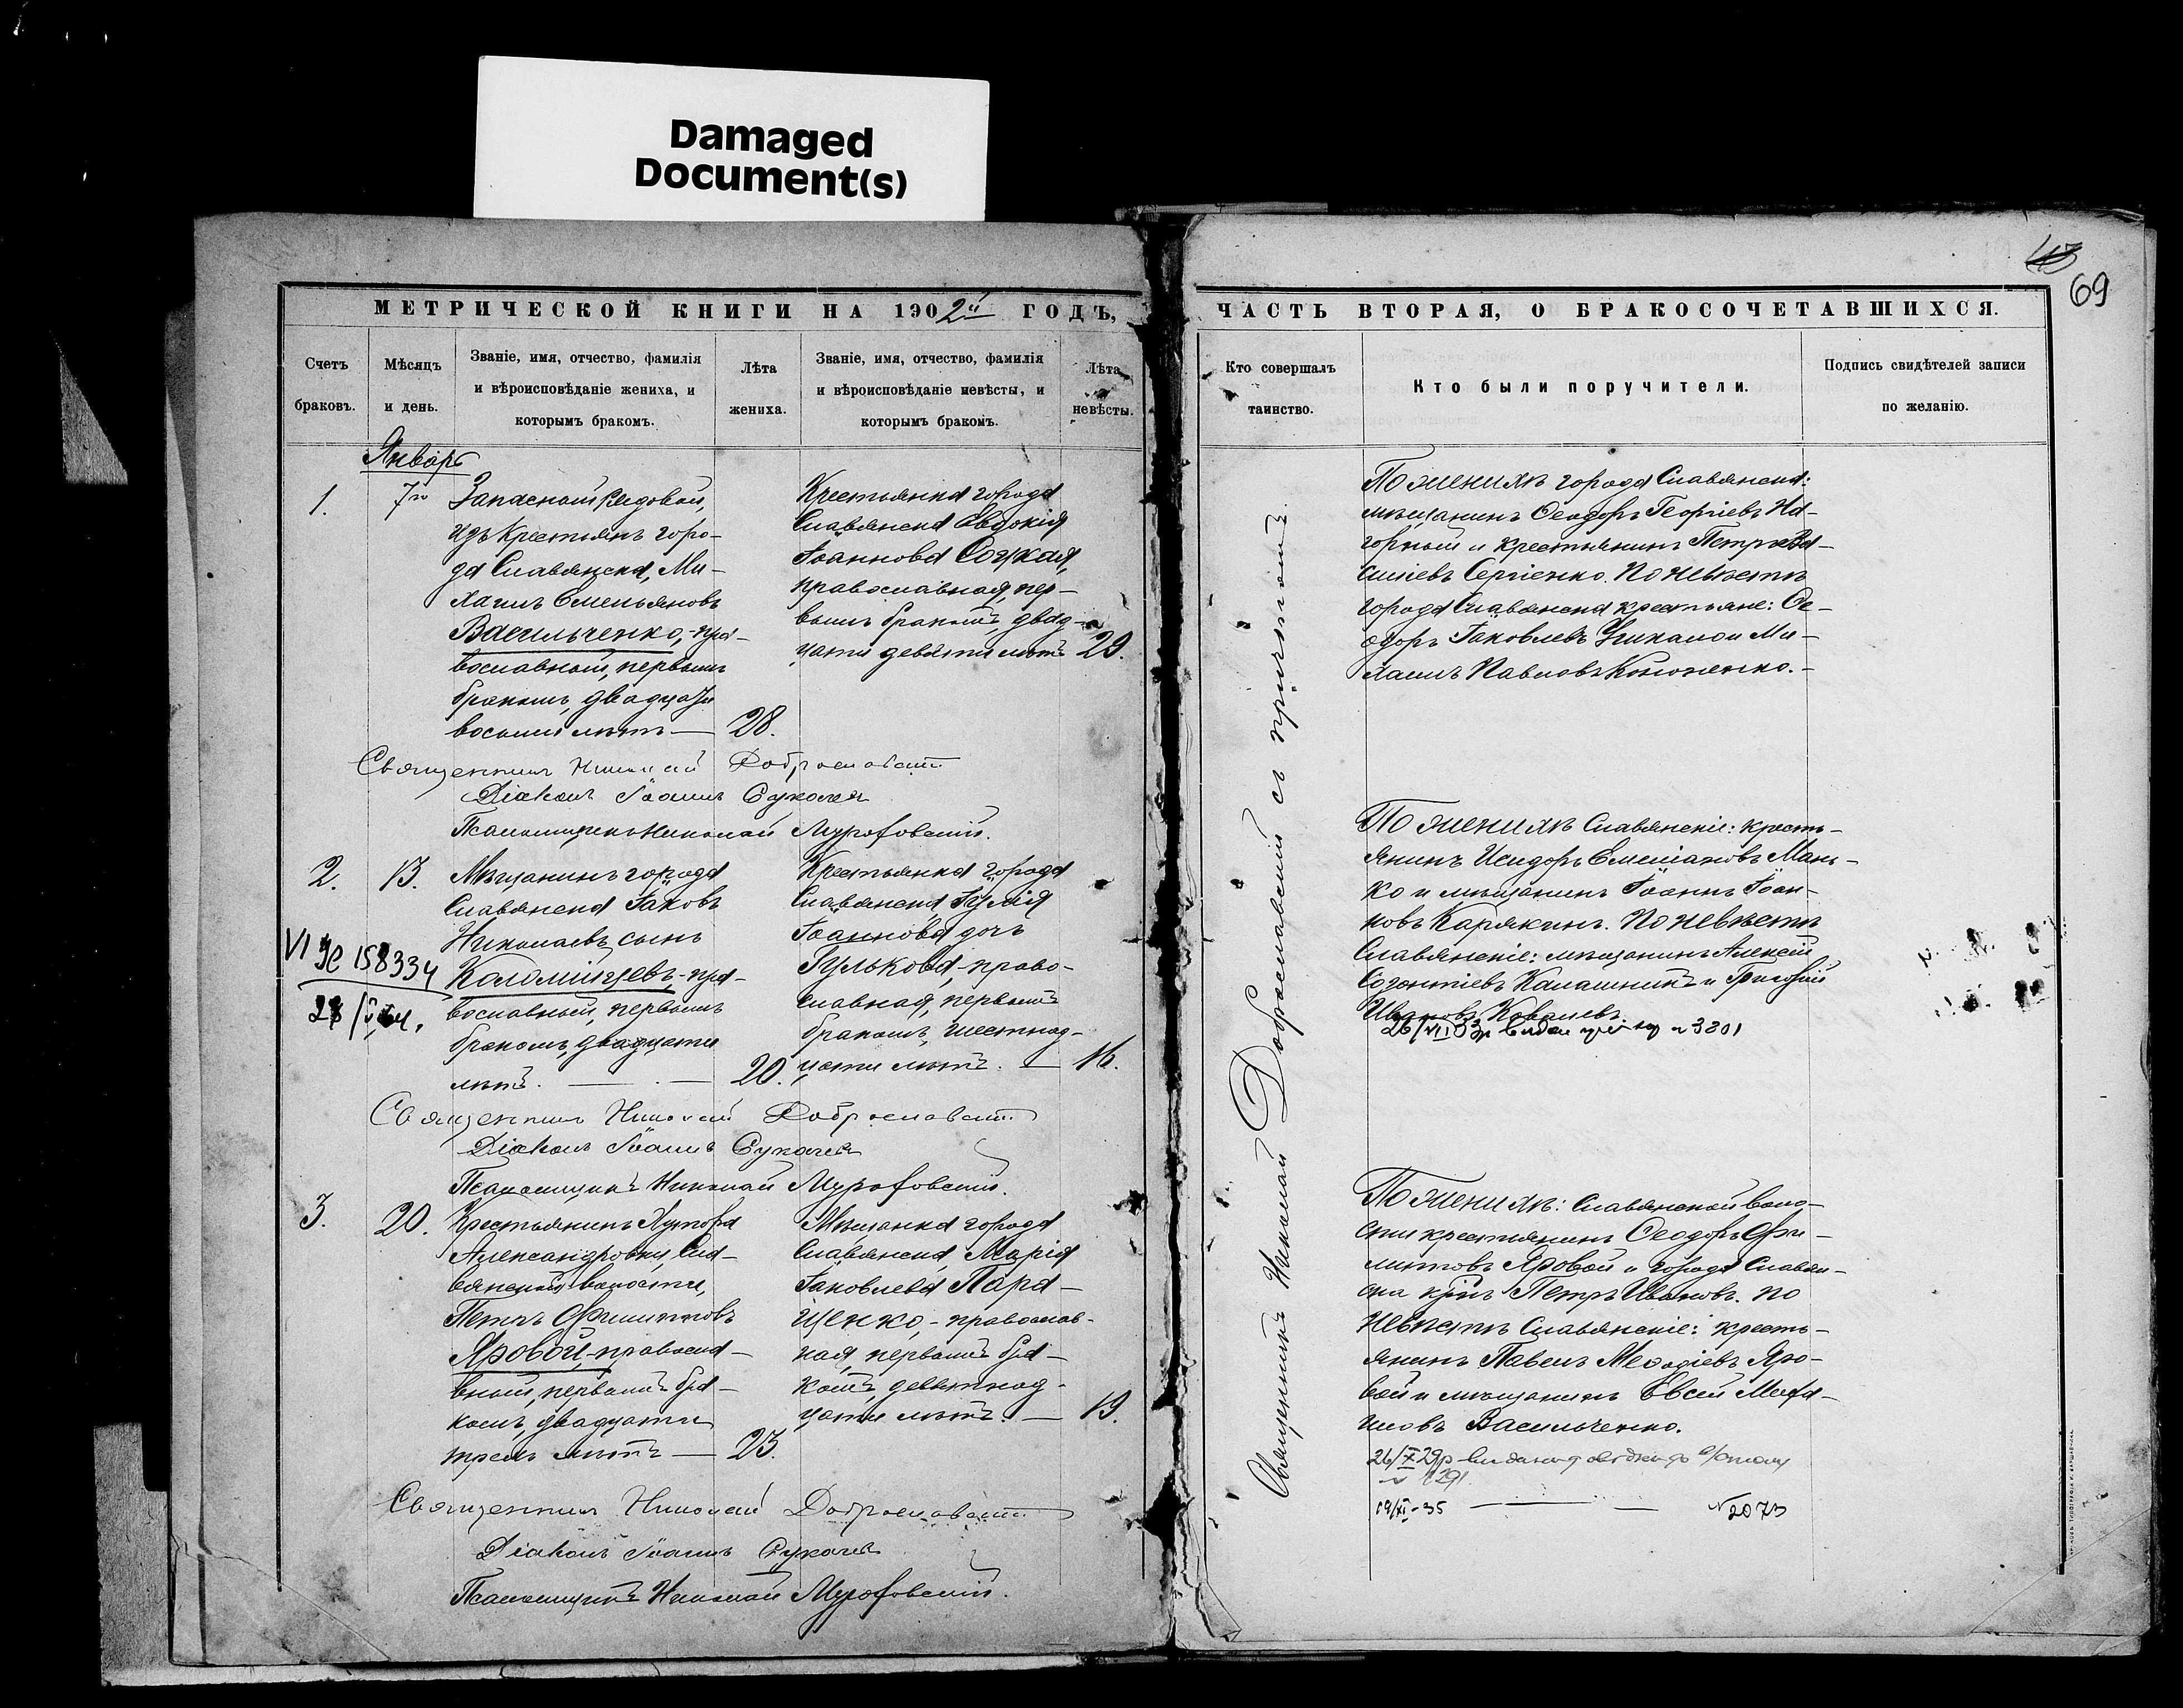 Damaged
Document(s)
69
МЕТРИЧЕСКОЙ КНИГИ НА 1902й ГОДЪ,
Счетъ
браковъ.
Мѣсяцъ
и день.
Званіе, имя, отчество, фамилія
и вѣроисповѣданіе жениха, и
которымъ бракомъ.
Лѣта
жениха.
Званіе, имя, отчество, фамилія
и вѣроисповѣданіе невѣсты, и
которымъ бракомъ.
Лѣта
невѣсты.
Январь
1.
7го
Запасный рядовый,
изъ крестьянъ горо-
да Славянска, Ми-
хаилъ Емельяновъ
Васильченко, - пра-
вославный, первымъ
бракомъ, двадцати
восьми лѣтъ —
28.
Крестьянка города
Славянска Евдокія
Іоаннова Соцкая,
православная, пер-
вымъ бракомъ, двад-
цати девяти лѣтъ
29.
Священникъ Николай Доброславскій
Діаконъ Іоаннъ
Псаломщикъ Николай
2.
13.
Мѣщанинъ города
Славянска Іаковъ
Николаевъ сынъ
Коломійцевъ, - пра-
вославный, первымъ
бракомъ, двадцати
лѣтъ. —
20.
Крестьянка города
Славянска Іулія
Іоаннова дочь
Гулькова, - право-
славная, первымъ
бракомъ, шестнад-
цати лѣтъ. —
16.
158334
Священникъ Николай Доброславскій
Діаконъ Іоаннъ
Псаломщикъ Николай
3.
20.
Крестьянинъ Хутора
Александровки, Сла-
вянской волости,
Петръ Филипповъ
Яровой, - правосла-
вный, первымъ бра-
комъ, двадцати
трехъ лѣтъ —
23.
Мѣщанка города
Славянска, Марія
Іаковлева Пара-
щенко, - православ-
ная, первымъ бра-
комъ, девятнад-
цати лѣтъ. —
19.
Священникъ Николай Доброславскій
Діаконъ Іоаннъ
Псаломщикъ Николай
ЧАСТЬ ВТОРАЯ, О БРАКОСОЧЕТАВШИХСЯ.
Кто совершалъ
таинство.
Кто были поручители.
Подпись свидѣтелей записи
по желанію.
Священникъ Николай Доброславскій съ причтомъ
По женихѣ города Славянска:
мѣщанинъ Ѳеодоръ Георгіевъ На-
горный и крестьянинъ Петръ Ва-
сильевъ Сергіенко. По невѣстѣ
города Славянска крестьяне: Ѳе-
одоръ Іаковлевъ и Ми-
хаилъ Павловъ
По женихѣ Славянскіе: кресть-
янинъ Исидоръ Мань-
ко и мѣщанинъ Іоаннъ Іоан-
новъ Карякинъ. По невѣстѣ
Славянскіе: мѣщанинъ Алексій
Калашникъ и Григорій
Ивановъ Ковалевъ.
3801
По женихѣ: Славянской воло-
сти крестьянинъ Ѳеодоръ Фи-
липповъ Яровой и города Славян-
ска Петръ Ивановъ. По
невѣстѣ Славянскіе: кресть-
янинъ Павелъ Меѳодіевъ Яро-
вой и мѣщанинъ Евсей
Васильченко.
19/XI-35 — — N 2073